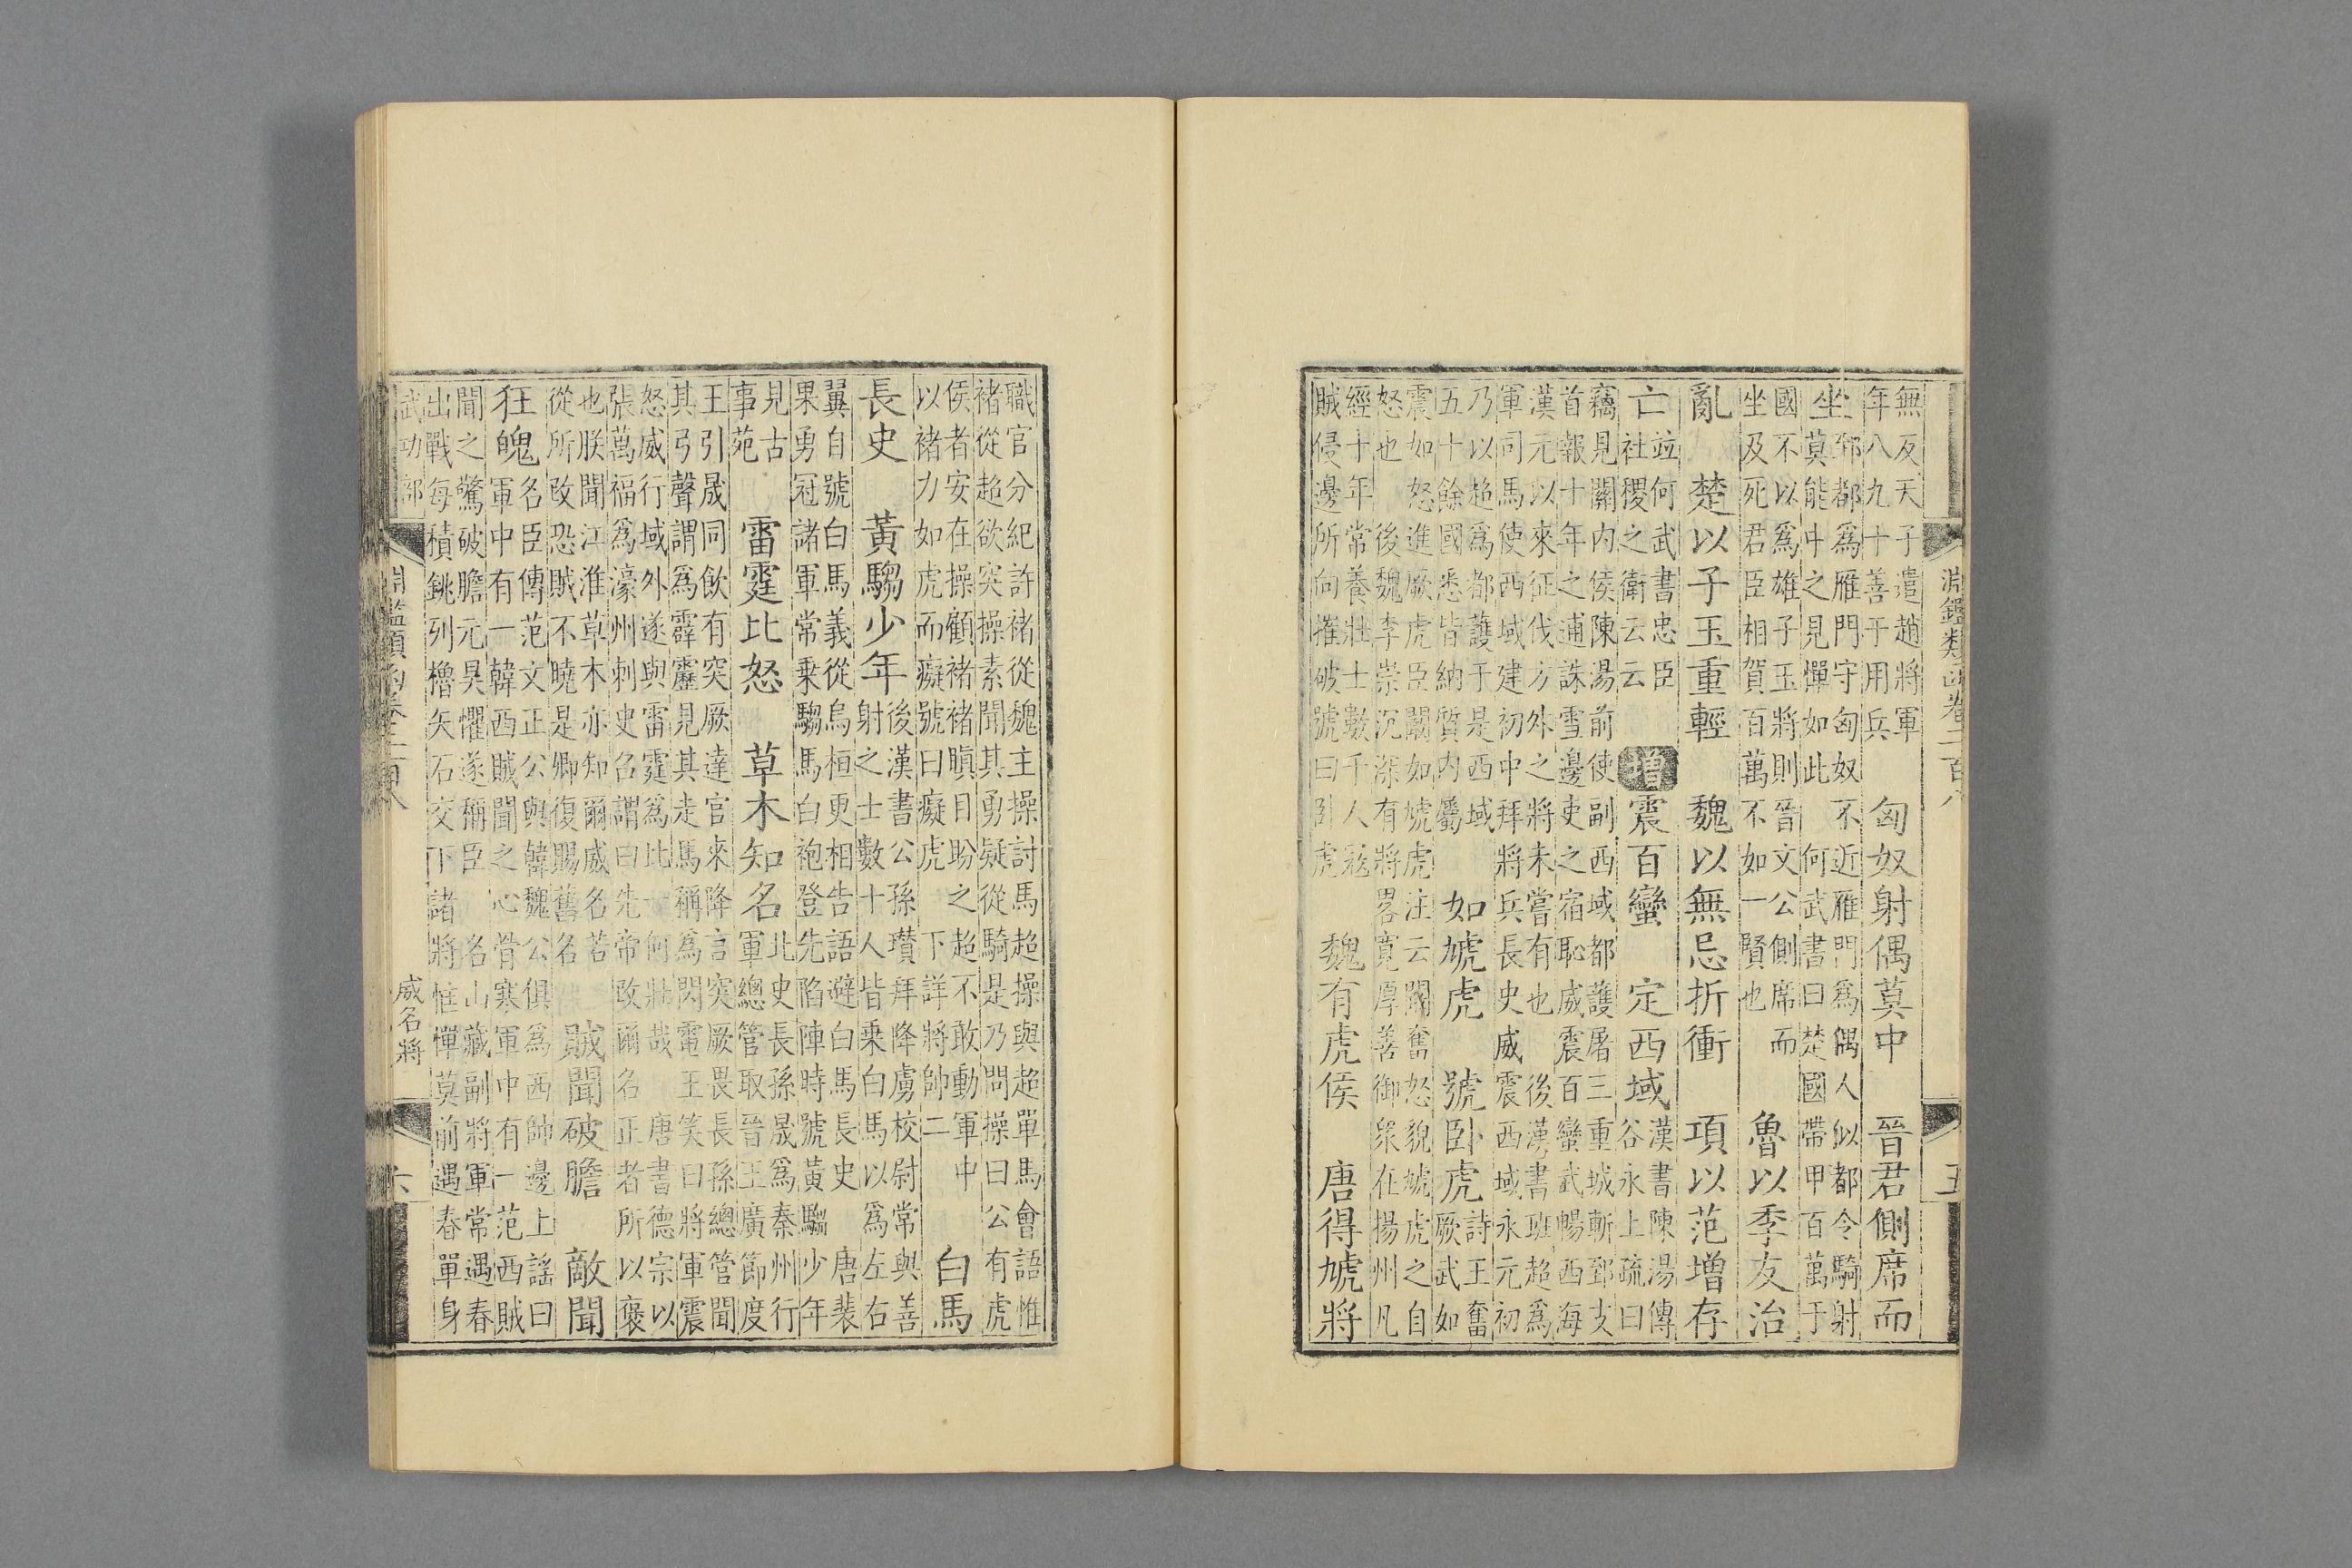 淵鑑類函卷二百八 五
無反天子遣趙將軍
年八九十善于用兵
匈奴射偶莫中 晉君側席而
坐
郅都爲雁門守匈奴不近雁門爲偶人似都令騎射
莫能中之見憚如此 何武書曰楚國帶甲百萬于
國不以爲雄子玉將則晉文公側席而
坐及死君臣相賀百萬不如一賢也
魯以季友治
亂 楚以子玉重輕 魏以無忌折衝 項以范增存
亡
竝何武書忠臣
社稷之衛云云
增 震百蠻 定西域
漢書陳湯傳
谷永上疏曰
竊見關內侯陳湯前使副西域都護屠三重城斬郅支
首報十年之逋誅雪邊吏之宿恥威震百蠻武暢西海
漢元以來征伐方外之將未嘗有也 後漢書班超爲
軍司馬使西域建初中拜將兵長史威震西域永元初
乃以超爲都護于是西域
五十餘國悉皆納質內屬
如虓虎 號卧虎
詩王奮
厥武如
震如怒進厥虎臣闞如虓虎注云闞奮怒貌虓虎之自
怒也 後魏李崇沉深有將畧寬厚善御衆在揚州凡
經十年常養壯士數千人寇
賊侵邊所向摧破號曰卧虎
魏有虎侯 唐得虓將
職官分紀許褚從魏主操討馬超操與超單馬會語惟
褚從超欲突操素聞其勇疑從騎是乃問操曰公有虎
侯者安在操顧褚褚瞋目盼之超不敢動軍中
以褚力如虎而癡號曰癡虎 下詳將帥二
白馬
長史 黃騶少年
後漢書公孫瓚拜降虜校尉常與善
射之士數十人皆乗白馬以爲左右
翼自號白馬義從烏桓更相告語避白馬長史 唐裴
果勇冠諸軍常乗騶馬白袍登先陷陣時號黃騶少年
見古
事苑
雷霆比怒 草木知名
北史長孫晟爲秦州行
軍總管取晉王廣節度
王引晟同飲有突厥達官來降言突厥畏長孫總管聞
其弓聲謂爲霹靂見其走馬稱爲閃電王笑曰將軍震
怒威行域外遂與雷霆爲比一何壯哉 唐書德宗以
張萬福爲濠州刺史召謂曰先帝改爾名正者所以褒
也朕聞江淮草木亦知爾威名若
從所改恐賊不曉是卿復賜舊名
賊聞破膽 敵聞
狂魄
名臣傳范文正公與韓魏公俱爲西帥邊上謠曰
軍中有一韓西賊聞之心骨寒軍中有一范西賊
聞之驚破膽元昊懼遂稱臣 名山藏副將軍常遇春
出戰每積銚列櫓矢石交下諸將惟憚莫前遇春單身
武功部 淵鑑類函卷二百八 威名將 六